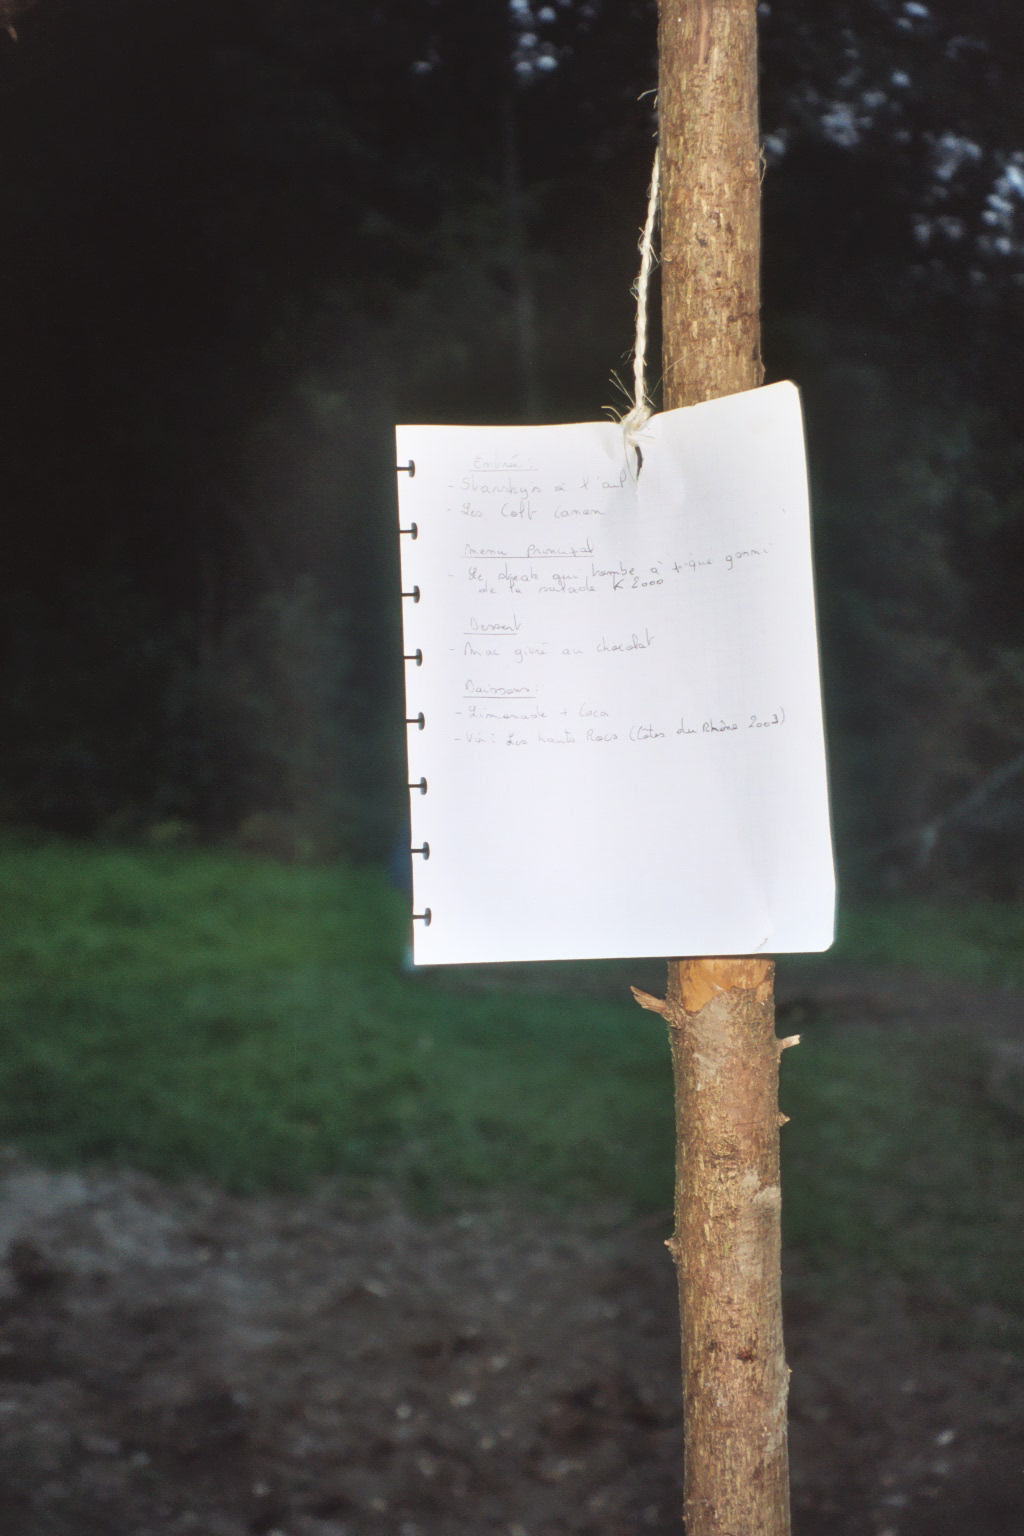 Entrée :
- Starskys à l'ail
- Les Colt Canon
Menu Principal
- Le steak qui tombe à pique garni
de la salade K 2000
Dessert
- Mac givré au chocolat
Boissons :
- Limonade + Coca
- Vin : Les hauts Rocs (Côtes du Rhône 2003)